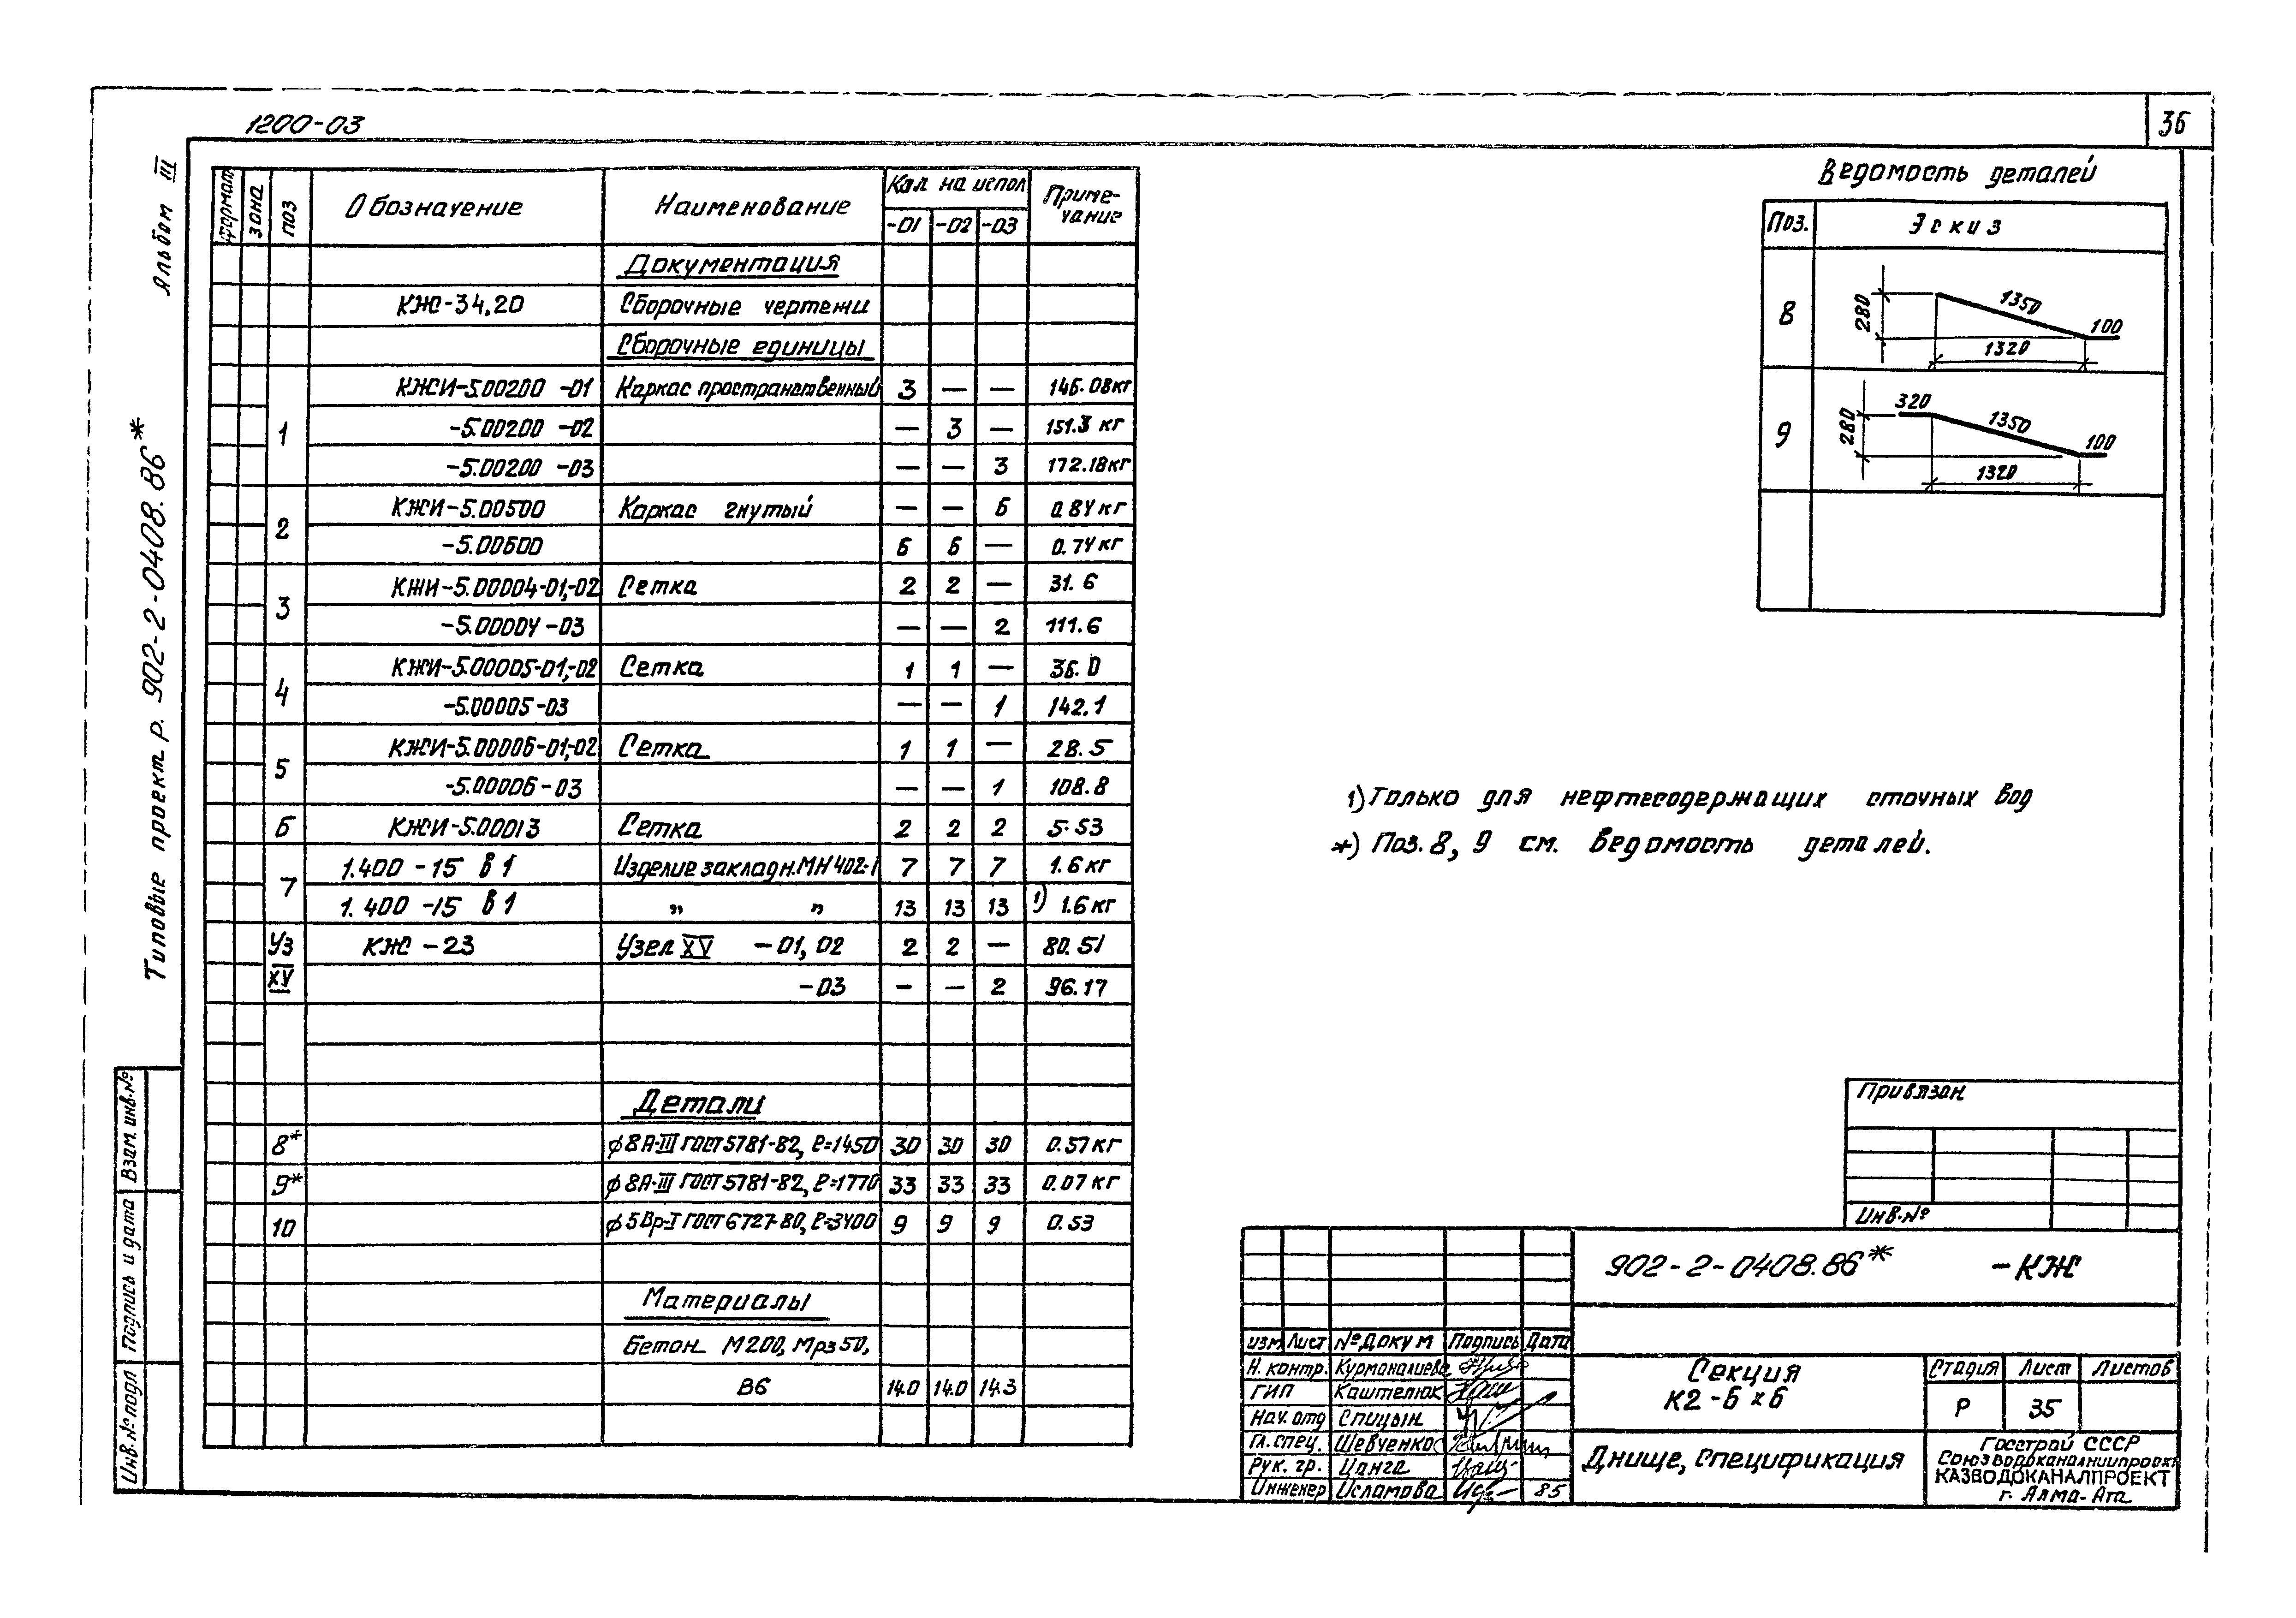 1200-03
36
Альбом III
Типовые проект р. 902-2-0408.86*
Формат Зона Поз Обозначение Наименование Кол на испол Приме-
чание
-01 -02 -03
Документация
КЖ-34,20 Сборочные чертежи
Сборочные единицы
КЖИ-5.00200 -01 Каркас пространственный 3 — — 146.08кг
1 -5.00200 -02 — 3 — 151.3 кг
-5.00200 -03 — — 3 172.18кг
КЖИ-5.00500 Каркас гнутый — — 6 0.84кг
2 -5.00600 6 6 — 0.74кг
КЖИ-5.00004-01,-02 Сетка 2 2 — 31.6
3 -5.00004 -03 — — 2 111.6
КЖИ-5.00005-01,-02 Сетка 1 1 — 36.0
4 -5.00005-03 — — 1 142.1
КЖИ-5.00006-01,-02 Сетка 1 1 — 28.5
5 -5.00006-03 — — 1 108.8
6 КЖИ-5.00013 Сетка 2 2 2 5.53
1.400-15 в 1 Изделие закладн. МН 402-1 7 7 7 1.6 кг
7 1.400-15 в 1 „ „ 13 13 13 1) 1.6 кг
Уз КЖ-23 Узел XV -01, 02 2 2 — 80.51
XV -03 — — 2 96.17
Детали
8* ϕ8А-III ГОСТ 5781-82, ℓ=1450 30 30 30 0.57кг
9* ϕ8А-III ГОСТ 5781-82, ℓ=1770 33 33 33 0.07кг
10 ϕ5Вр-I ГОСТ 6727-80, ℓ=3400 9 9 9 0.53
Материалы
Бетон М200, Мрз50,
В6 14.0 14.0 14.3
Ведомость деталей
Поз. Эскиз
8 280 1350 100 1320
9 320 280 1350 100 1320
1) Только для нефтесодержащих сточных вод
*) Поз. 8, 9 см. Ведомость деталей.
Привязан
Инв.№
902-2-0408.86* -КЖ
Изм Лист № докум Подпись Дата
Н. контр. Курманалиева
ГИП Каштелюк
Нач. отд Спицын
Гл. спец. Шевченко
Рук. гр. Цанга
Инженер Исламова 85
Секция
К2-6х6
Стадия Лист Листов
Р 35
Днище, Спецификация
Госстрой СССР
Союзводоканалниипроект
КАЗВОДОКАНАЛПРОЕКТ
г. Алма-Ата
Инв. № подл Подпись и дата Взам. инв. №